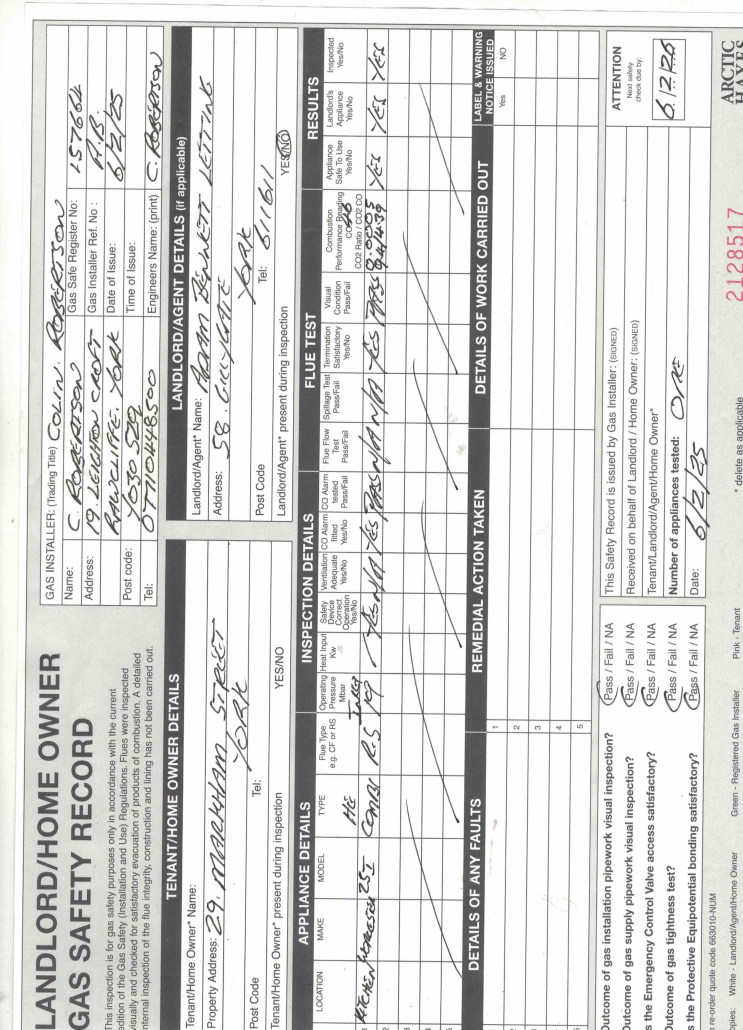 LANDLORD/HOME OWNER
GAS SAFETY RECORD
This inspection is for gas safety purposes only in accordance with the current
edition of the Gas Safety (Installation and Use) Regulations. Flues were inspected
visually and checked for satisfactory evacuation of products of combustion. A detailed
internal inspection of the flue integrity, construction and lining has not been carried out.
GAS INSTALLER: (Trading Title) COLIN ROBERTSON
Name: C. ROBERTSON
Gas Safe Register No: 157664
Address: 19 LEIGHTON CROFT
Gas Installer Ref. No : A.B.
RAWCLIFFE. YORK
Date of Issue: 6/2/25
Post code: YO30 5ZQ
Time of Issue:
Tel: 07710448500
Engineers Name: (print) C. ROBERTSON
TENANT/HOME OWNER DETAILS
Tenant/Home Owner* Name:
Property Address: 29. MARKHAM STREET
YORK
Post Code
Tel:
Tenant/Home Owner* present during inspection YES/NO
LANDLORD/AGENT DETAILS (if applicable)
Landlord/Agent* Name: ADAM BENNETT LETTING
Address: 58. GILLYGATE
YORK
Post Code
Tel: 611611
Landlord/Agent* present during inspection YES/NO
APPLIANCE DETAILS
INSPECTION DETAILS
FLUE TEST
RESULTS
LOCATION
MAKE
MODEL
TYPE
Flue Type e.g. CF or RS
Operating Pressure Mbar
Heat Input Kw
Safety Device Correct Operation Yes/No
Ventilation Adequate Yes/No
CO Alarm fitted Yes/No
CO Alarm tested Pass/Fail
Flue Flow Test Pass/Fail
Spillage Test Pass/Fail
Termination Satisfactory Yes/No
Visual Condition Pass/Fail
Combustion Performance Reading CO2 Ratio / CO2 CO
Appliance Safe To Use Yes/No
Landlord's Appliance Yes/No
Inspected Yes/No
1 KITCHEN WORCESTER 25I HE COMBI R.S INLET YES N/A YES PASS N/A N/A YES PASS 0.0005 YES YES YES
2
3
4
5
DETAILS OF ANY FAULTS
REMEDIAL ACTION TAKEN
DETAILS OF WORK CARRIED OUT
LABEL & WARNING NOTICE ISSUED
Yes NO
1
2
3
4
5
Outcome of gas installation pipework visual inspection? Pass / Fail / NA
Outcome of gas supply pipework visual inspection? Pass / Fail / NA
Is the Emergency Control Valve access satisfactory? Pass / Fail / NA
Outcome of gas tightness test? Pass / Fail / NA
Is the Protective Equipotential bonding satisfactory? Pass / Fail / NA
This Safety Record is issued by Gas Installer: (SIGNED)
Received on behalf of Landlord / Home Owner: (SIGNED)
Tenant/Landlord/Agent/Home Owner*
Number of appliances tested: ONE
Date: 6/2/25
ATTENTION
Next safety
check due by:
6/2/26
re-order quote code 663010-NUM
Copies: White - Landlord/Agent/Home Owner Green - Registered Gas Installer Pink - Tenant
* delete as applicable
2128517
ARCTIC
HAYES